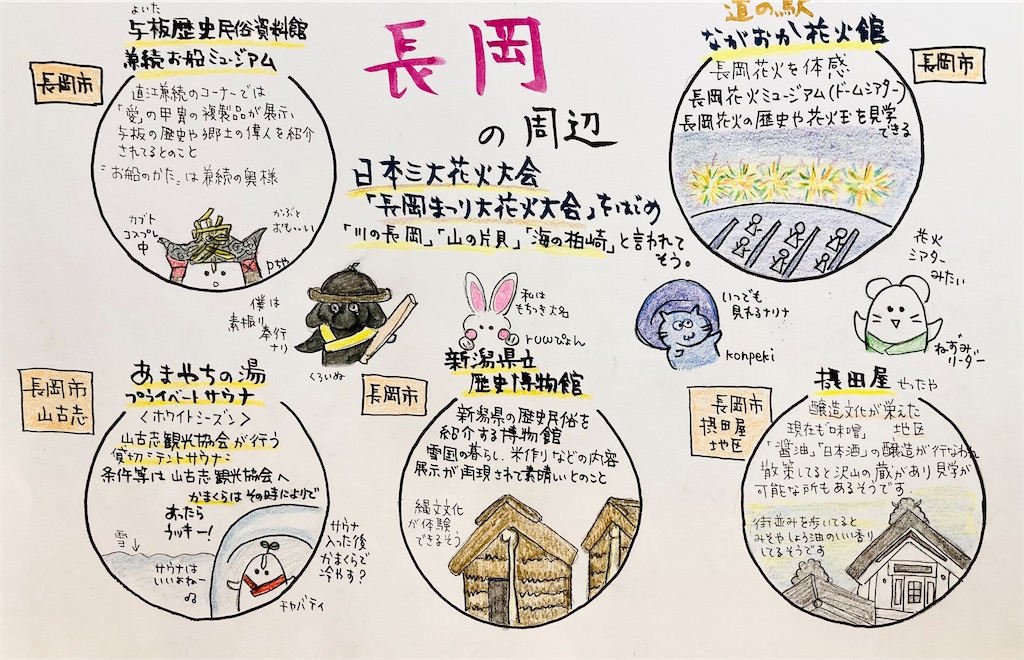 長岡
の周辺
日本三大花火大会
「長岡まつり大花火大会」をはじめ
「川の長岡」「山の片貝」「海の柏崎」と言われて
そう。
よいた
与板歴史民俗資料館
兼続お船ミュージアム
長岡市
直江兼続のコーナーでは
「愛」の甲冑の複製品が展示、
与板の歴史や郷土の偉人を紹介
されてるとのこと
"お船のかた"は兼続の奥様
カブト
コスプレ
中
かぶと
おも〜い
Pちゃ
道の駅
ながおか花火館
長岡市
長岡花火を体感
長岡花火ミュージアム(ドームシアター)
長岡花火の歴史や花火玉を見学
できる
花火
シアター
みたい
ねずみリーダー
僕は
素振り
奉行
ナリ
くろいぬ
私は
もちつき大名
ruuぴょん
いつでも
見れるナリナ
konpeki
長岡市
山古志
あまやちの湯
プライベートサウナ
<ホワイトシーズン>
山古志観光協会が行う
貸切ミテントサウナミ
条件等は山古志観光協会へ
かまくらはその時によりで
あったら
ラッキー!
雪
サウナは
いいよねー
サウナ
入った後
かまくらで
冷やす?
チャパティ
長岡市
新潟県立
歴史博物館
新潟県の歴史民俗を
紹介する博物館
雪国の暮らし、米作りなどの内容
展示が再現されて素晴しいとのこと
縄文文化
が体験
できるそう
長岡市
摂田屋
地区
摂田屋 せったや
醸造文化が栄えた
地区
現在も「味噌」
「醤油」「日本酒」の醸造が行なわれ
散策してると沢山の蔵があり見学が
可能な所もあるそうです.
街並みを歩いてると
みそやしょう油のいい香り
してるそうです